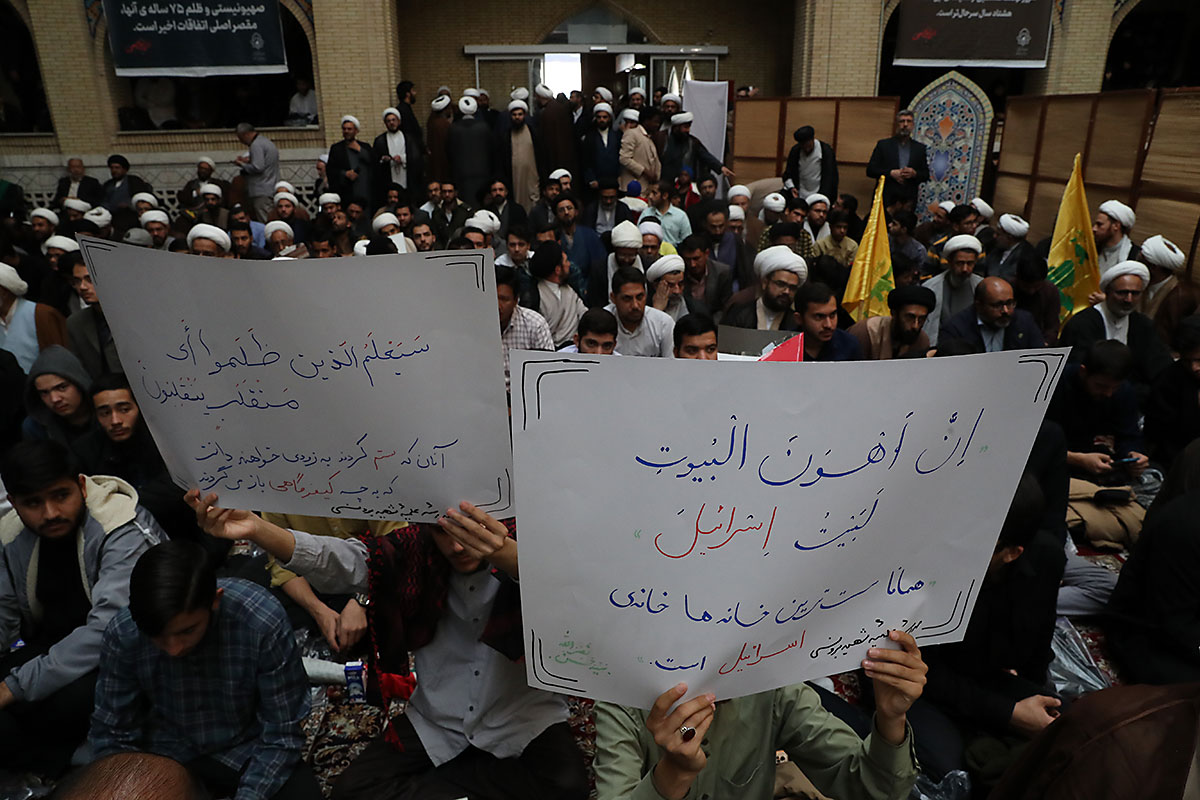 صهیونیستی و ظلم ۷۵ ساله‌ی آنها،
مقصر اصلی اتفاقات اخیر است.
هشتاد سال سرحال‌تر است.
سَیَعْلَمُ الَّذِینَ ظَلَمُوا أَیَّ
مُنْقَلَبٍ یَنْقَلِبُونَ
آنان که ستم کردند به زودی خواهند دانست
که به چه کیفرگاهی باز می‌گردند
" اِنَّ اَهْوَنَ الْبُیوتِ
لَبَیْتُ اِسْرائیلَ "
" همانا سست‌ترین خانه‌ها خانه‌ی
اسرائیل است. "